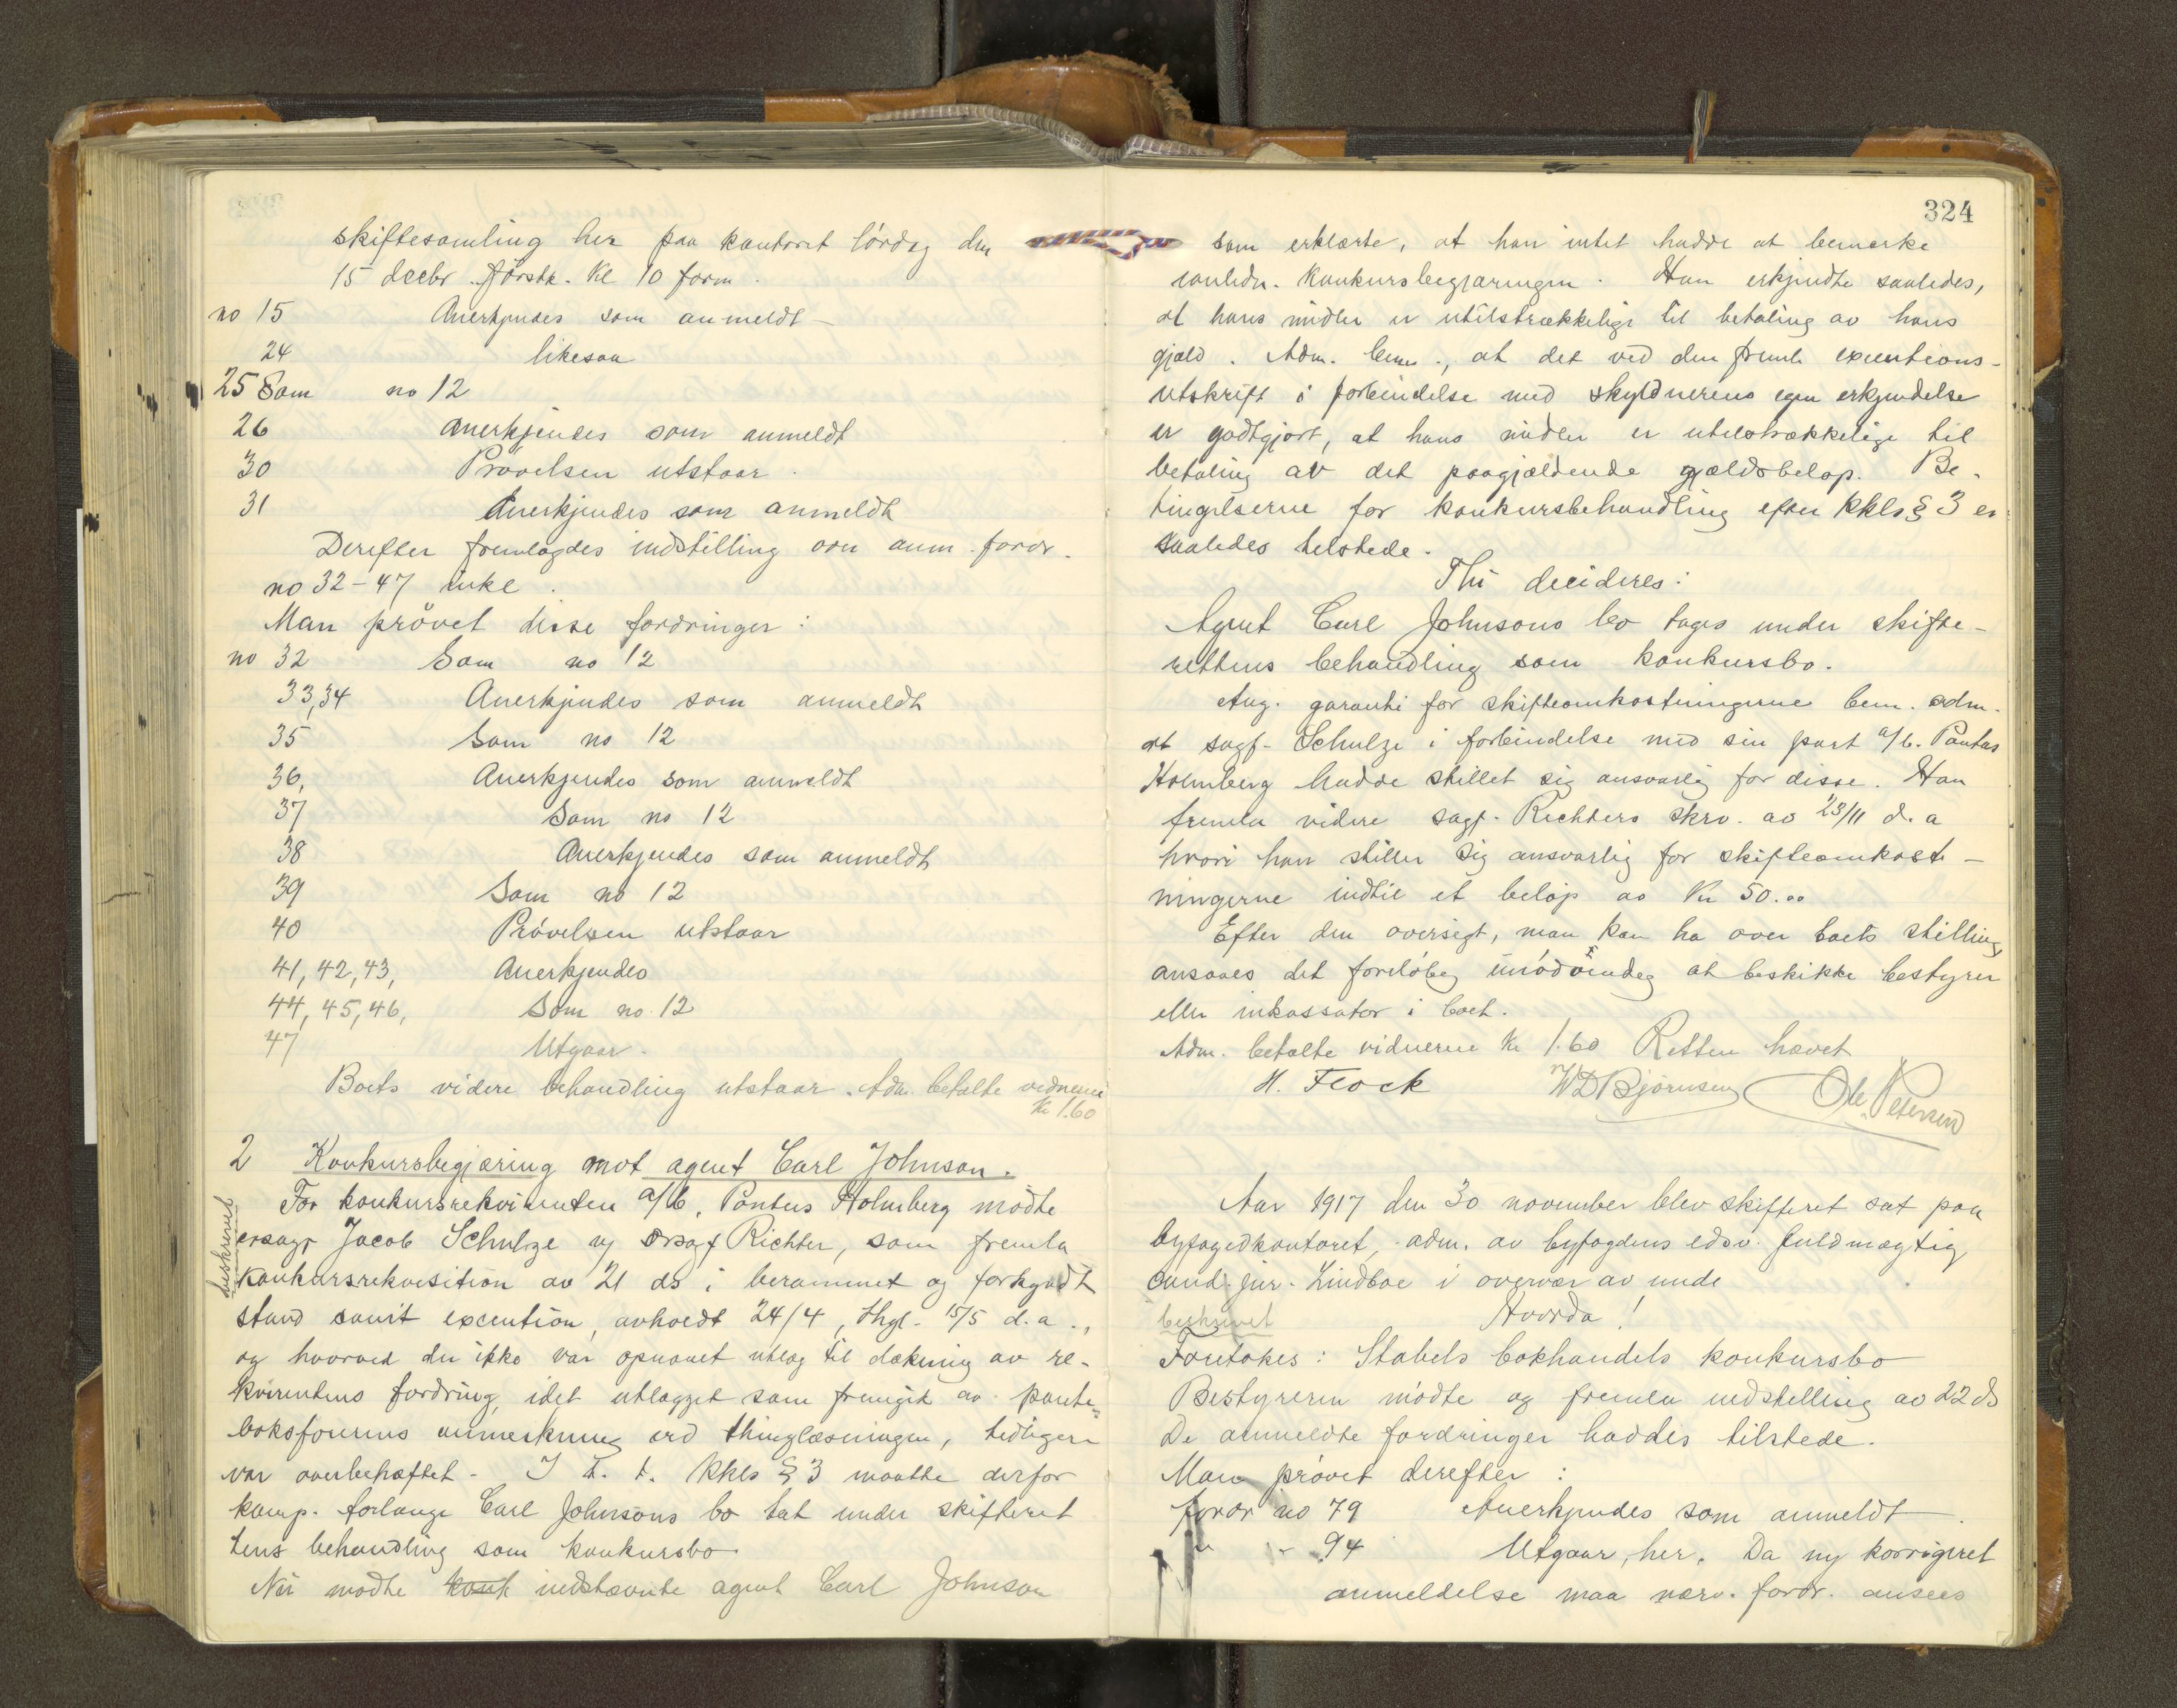 skiftesamling her paa kontoret lördag den
15 decbr. förstk. Kl 10 form.
no 15 Anerkjendes som anmeldt
24 likesaa
25 Som no 12
26 Anerkjendes som anmeldt
30 Prövelsen utstaar.
31 Anerkjendes som anmeldt
Derefter fremlagdes indstilling om anm. fordr.
no 32-47 inkl.
Man prövet disse fordringer:
no 32 Som no 12
33,34 Anerkjendes som anmeldt
35 Som no 12
36, Anerkjendes som anmeldt
37 Som no 12
38 Anerkjendes som anmeldt
39 Som no 12
40 Prövelsen utstaar
41, 42, 43, Anerkjendes
44, 45, 46, Som no 12
47 Utgaar.
Boets videre behandling utstaar. Adm. betalte vidnerne
Kr 1.60
2 Konkursbegjæring mot agent Carl Johnson.
beskrevet
For konkursrekvirenten a/b. Pontus Holmberg mödte
Jacob Schulze v/ Richter, som fremla
konkursrekvisition av 21 ds i berammet og forkyndt
stand samt execution, avholdt 24/4, thgl. 15/5 d.a.,
og hvorved der ikke var opnaaet utlag til dækning av re-
kvirentens fordring, idet utlagget som fremgik av pante-
boksförerens anmerkning ved thinglæsningen, tidligere
var overbehæftet. I h. t. Kkls § 3 maatte derfor
komp. forlange Carl Johnsons bo tat under skifteret
tens behandling som konkursbo.
Nu mödte konk indstevnte agent Carl Johnson
324
som erklærte, at han intet hadde at bemerke
ianledn. konkursbegjæringen. Han erkjendte saaledes,
at hans midler er utilstrækkelige til betaling av hans
gjæld. Adm. bem., at det ved den freml. executions-
utskrift i forbindelse med skyldnerens egen erkjendelse
er godtgjort, at hans midler er utilstrækkelige til
betaling av det paagjældende gjældsbelöp. Be-
tingelserne for konkursbehandling efter Kkls § 3 er
saaledes tilstede.
Thi decideres:
Agent Carl Johnsons bo tages under skifte-
rettens behandling som konkursbo.
Ang. garanti for skifteomkostningerne bem. adm.
at sagf. Schulze i forbindelse med sin part a/b. Pontus
Holmberg hadde stillet sig ansvarlig for disse. Han
fremla videre sagf. Richters skrv. av 23/11 d. a
hvori han stiller sig ansvarlig for skifteomkost-
ningerne indtil et belöp av Kr 50.00
Efter den oversigt, man kan ha over boets stilling,
ansaaes det forelöbig unödvendig at beskikke bestyrer
eller inkassator i boet.
Adm. betalte vidnerne Kr 1.60 Retten hævet
H. Flock W D Bjørnsen Ole Petersen
Aar 1917 den 30 november blev skifteret sat paa
byfogedkontoret, adm. av byfogdens edsv. fuldmægtig
cand. jur. Lindboe i overvær av unde
beskrevet
Hvorda!
Foretokes: Stabels bokhandels konkursbo
Bestyreren mödte og fremla indstelling av 22 ds
De anmeldte fordringer haddes tilstede.
Man prövet derefter:
fordr no 79 Anerkjendes som anmeldt.
" " 94 Utgaar, her. Da ny korrigeret
anmeldelse maa nærv. fordr. ansees